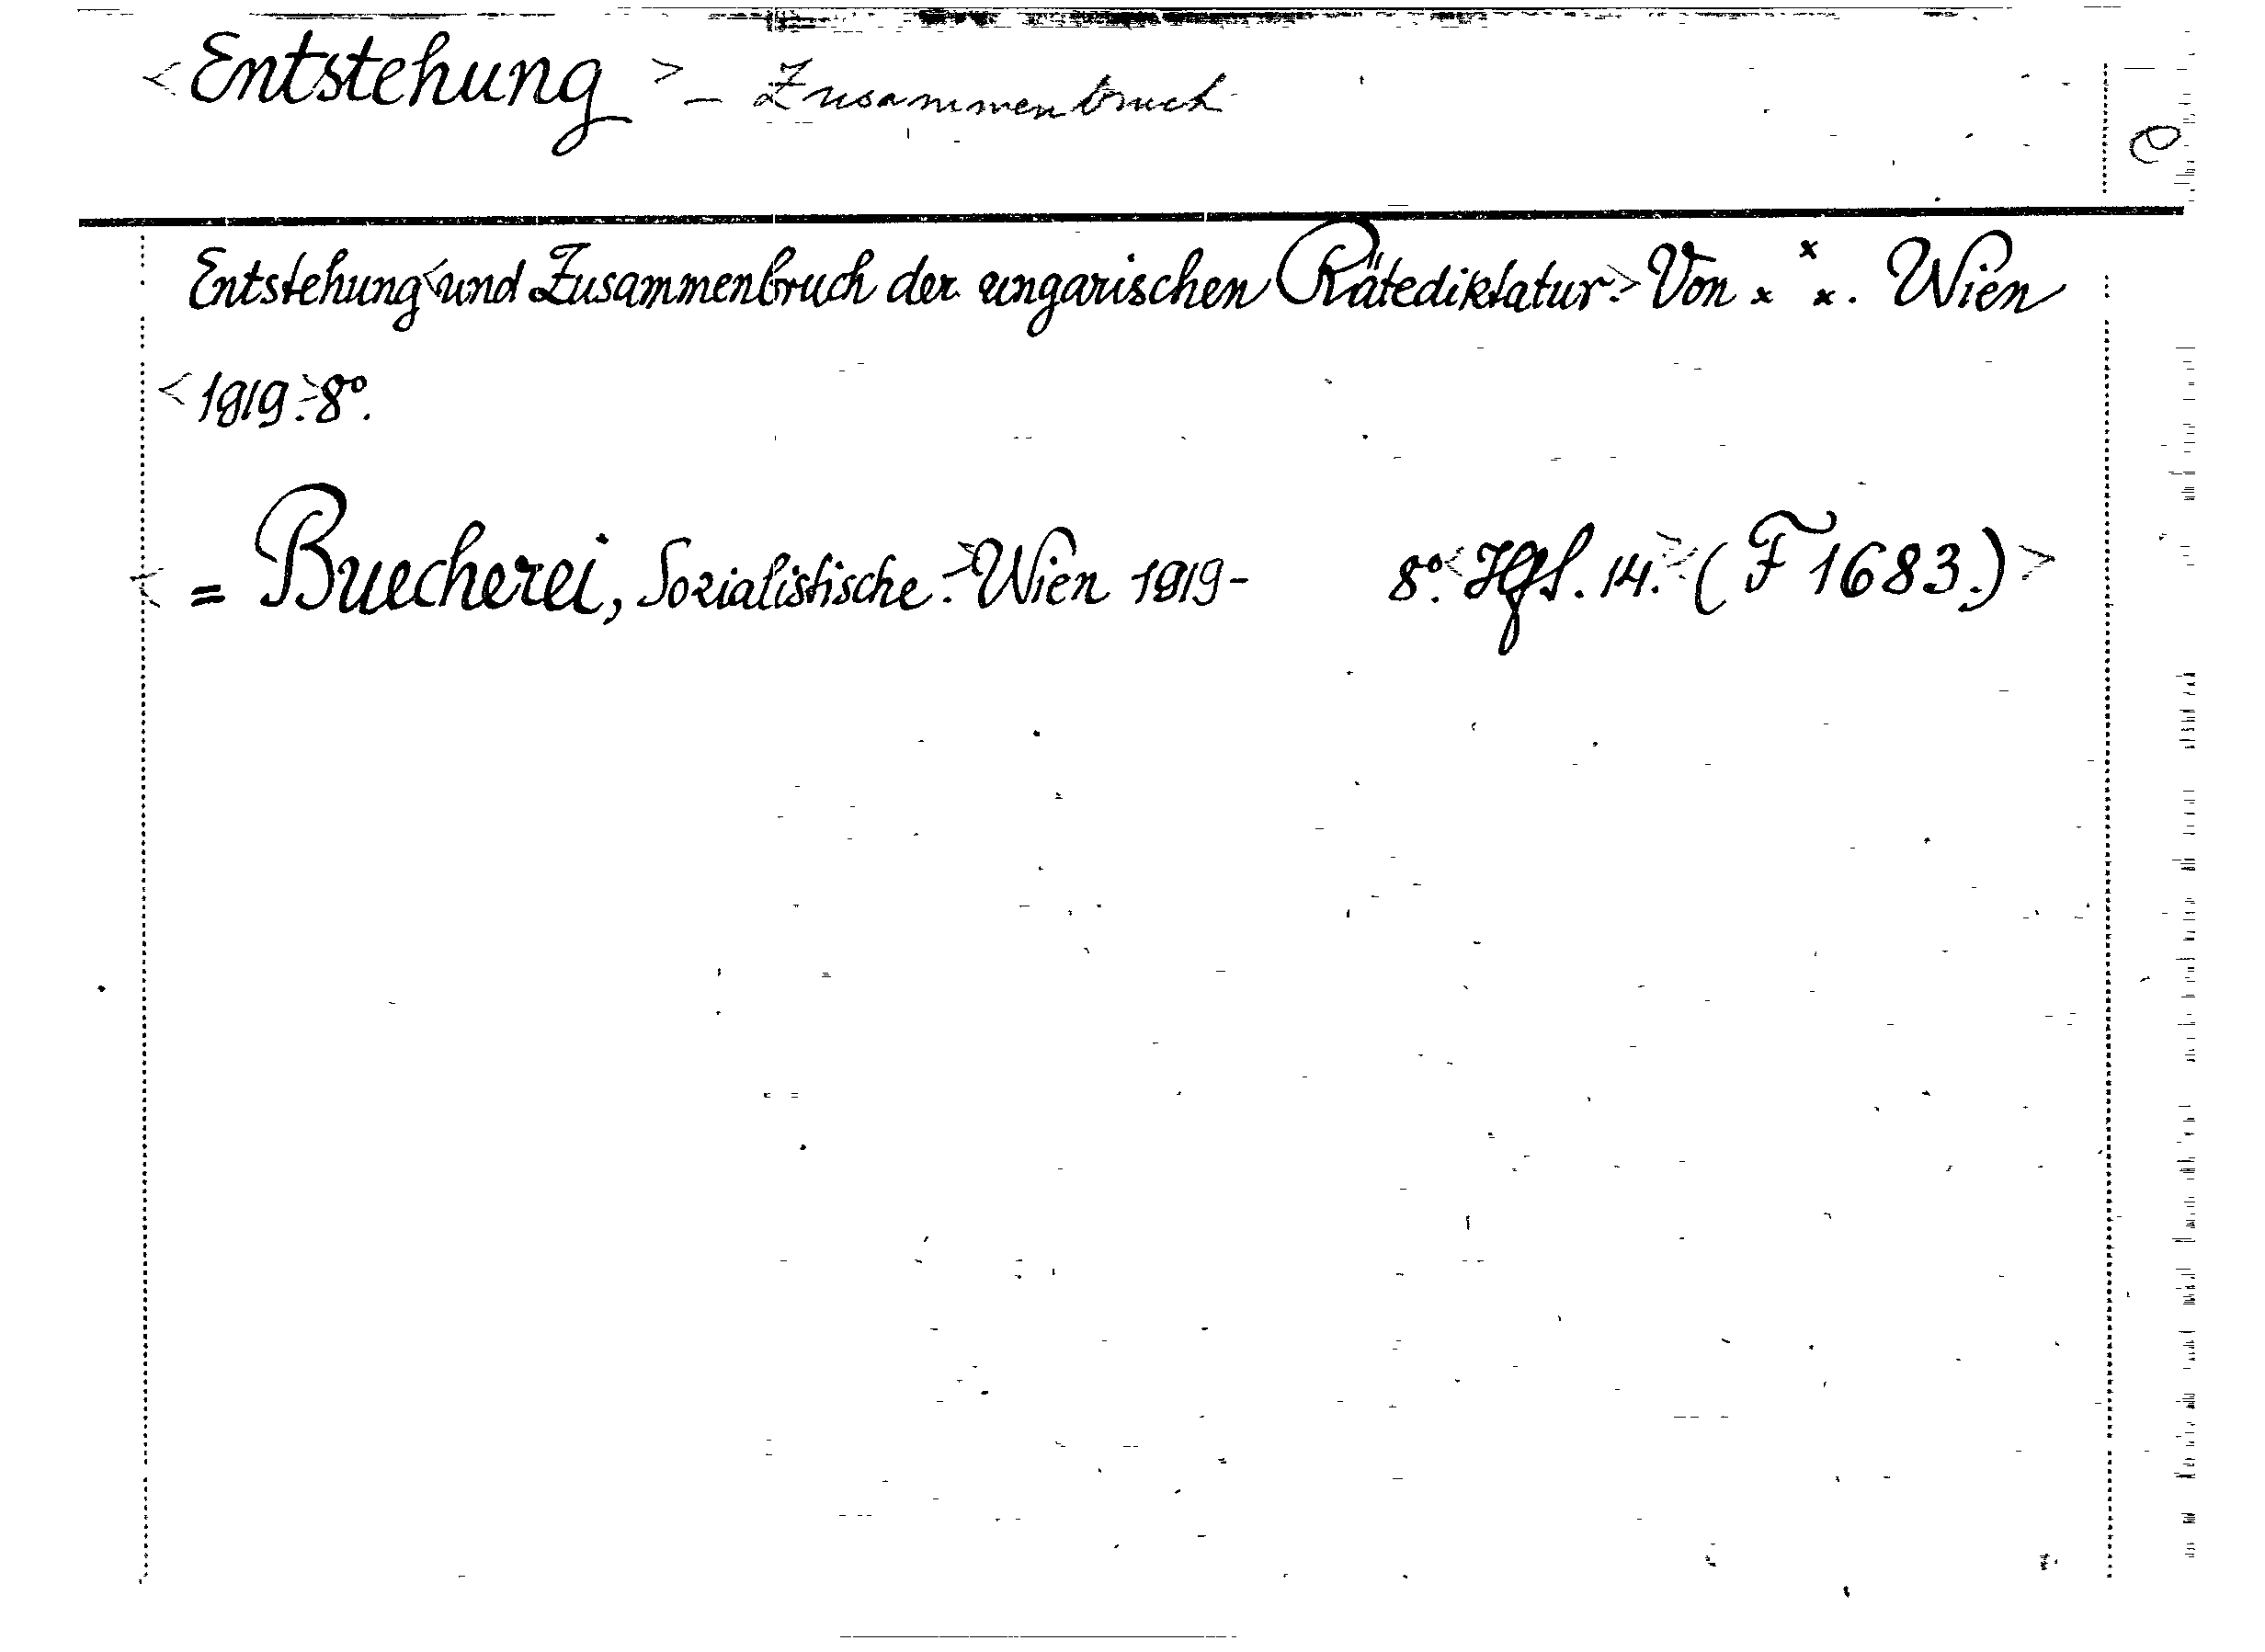 <Entstehung> - Zusammenbruch
Entstehung <und Zusammenbruch der ungarischen Rätediktatur.> Von x x x. Wien
<1919.> 8º.
< = Buecherei, Sozialistische.> Wien 1919- 8º. < Hft. 14. > < (F 1683.) >